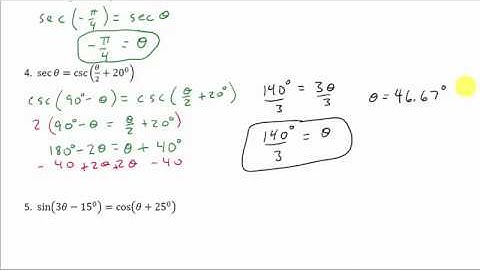 sec(-π/4) = sec θ
-π/4 = θ
4. sec θ = csc(θ/2 + 20⁰)
csc(90° - θ) = csc(θ/2 + 20°)
2(90° - θ = θ/2 + 20°)
180° - 2θ = θ + 40°
- 40 + 2θ +2θ - 40
140°/3 = 3θ/3
140°/3 = θ
θ = 46.67°
5. sin(3θ - 15⁰) = cos(θ + 25⁰)